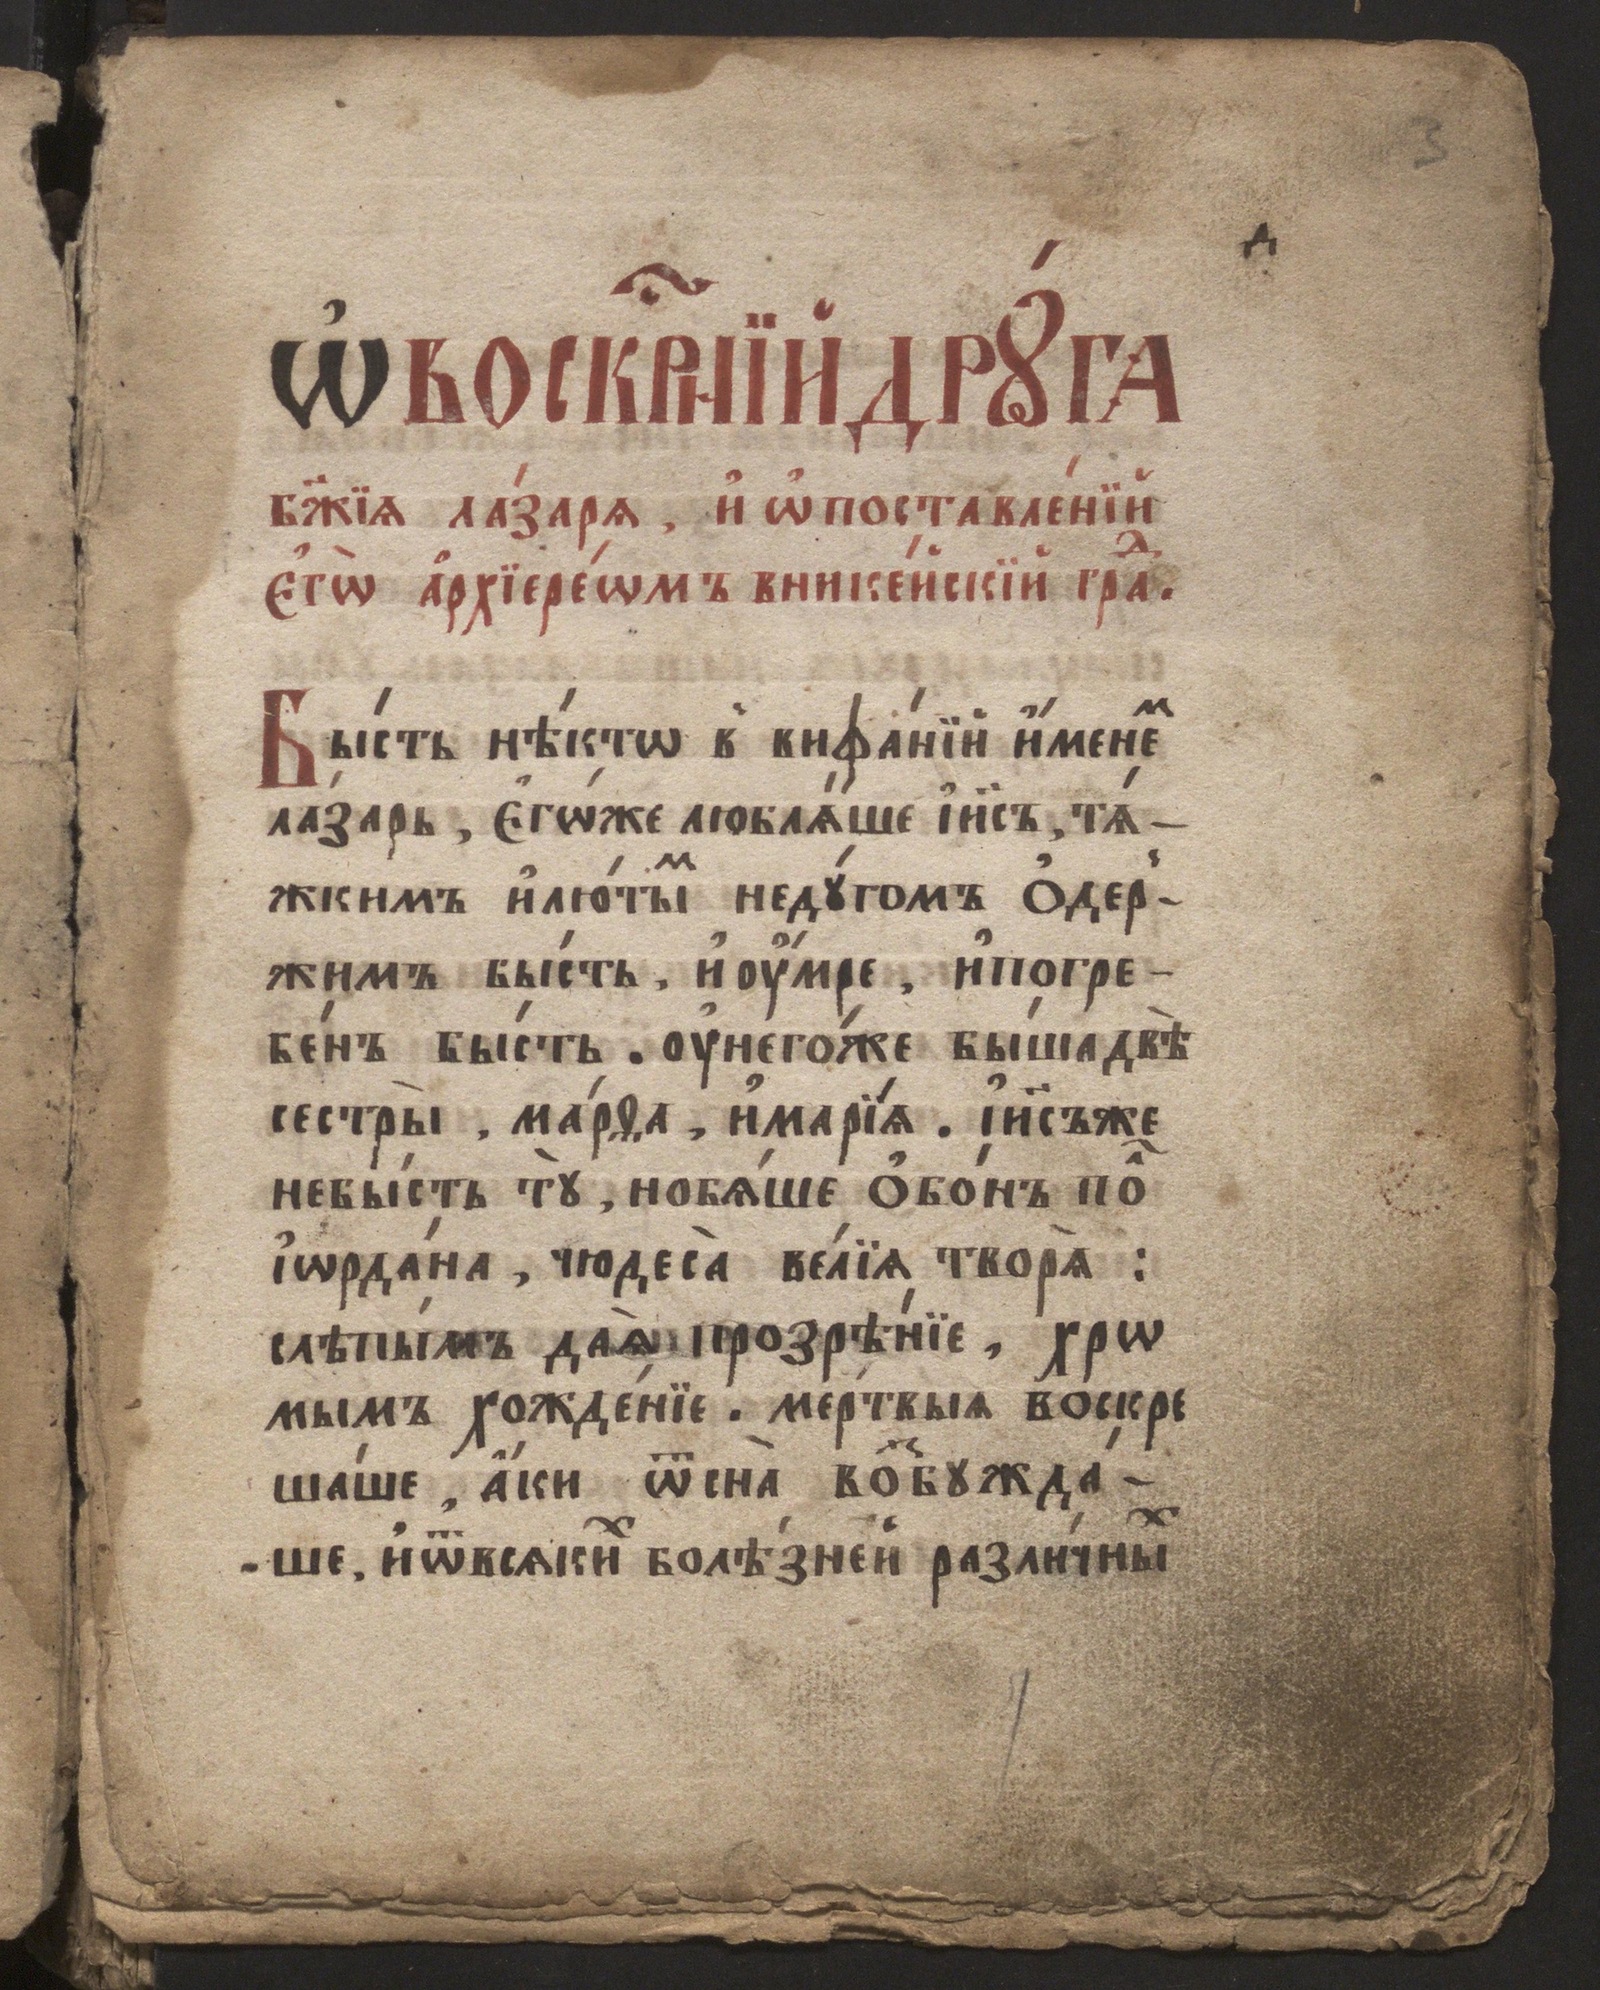 3
д
Ѡ҆ВОСКР҃НЇИ́ ДРꙊ́ГА
бж҃їѧ ла́заря, и҆ ѡ҆поставле́нїи
є҆гѡ̀ а҆рхїере́ѡмъ вникє́йскїй гра́ⷣ.
Бы́сть нѣ́ктѡ в̾ виѳа́нїи и҆́менеⷨ
ла́зарь, є҆гѡ́же люблѧ́ше і҆и҃съ, тѧ́-
жкимъ и҆лю́тыⷨ недꙋ́гомъ ѻ҆дер̾-
жимъ бы́сть, и҆ оу҆́мре, и҆погре-
бе́нъ бы́сть. оу҆него́же бы́ша двѣ̀
сестры̀, ма́рѳа, и҆марі́ѧ. і҆и҃съже
небы́сть тꙋ̀, нобѧ́ше ѻ҆бо́нъ по́ⷧ
і҆ѡрда́на, чюдеса̀ ве́лїѧ творѧ̀ :
слѣпы́мъ даѧ̀ прозрѣ́нїе, хрѡ
мымъ хожде́нїе. ме́ртвыѧ воскре
ша́ше, а҆́ки ѿсна̀ воⷥбꙋжда́-
-ше, и҆ѿвсѧкиⷯ болѣ́зней разли́чныⷯ